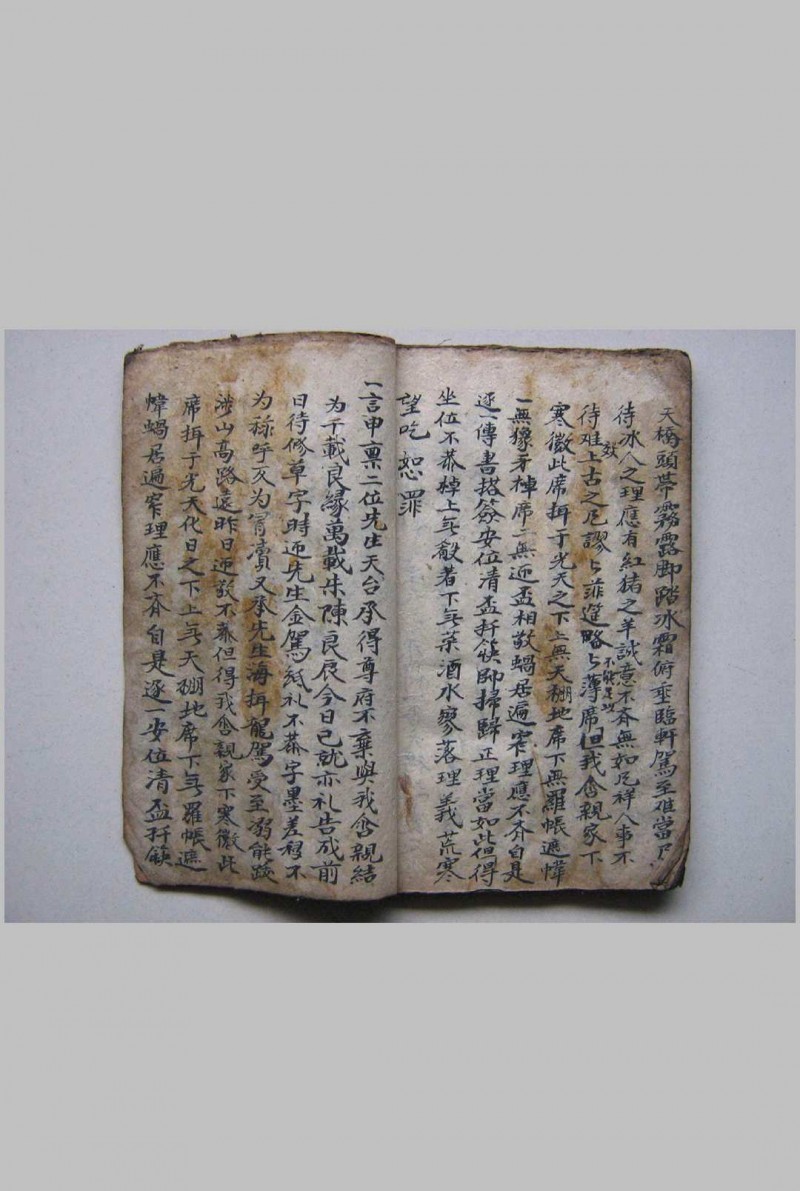 天橋頭帶霧露脚踏冰霜俯垂臨軒駕至难當尸
待冰人之理應有紅猪之羊誠意不齐無如瓦祥人事不
待难上古之瓦謬与菲進略与薄席但我舍親家下
敬
不能足以
寒微此席搙于光天之下上無天棚地席下無羅帳遮幃
一無獴牙棹席二無迎盃相敬蝸居遍窄理應不齐自是
逐一傳書搭簽安位清盃扦筷即掃歸正理當如此但得
坐位不恭棹上无殽着下无菜酒水寥落理義荒寒
望吃恕罪
一言申禀二位先生天台承得尊府不棄與我舍親結
为千載良緣萬載朱陳良辰今日已就亦礼告成前
日待修草字時迎先生金駕紙礼不恭字墨差移不
为禄呼又为冐凟又承先生海搙龍駕受至溺能跋
涉山高路遠昨日迎敬不恭但得我舍親家下寒微此
席搙于光天化日之下上无天棚地席下无羅帳遮
幃蝸居遍窄理應不齐自是逐一安位清盃扦筷